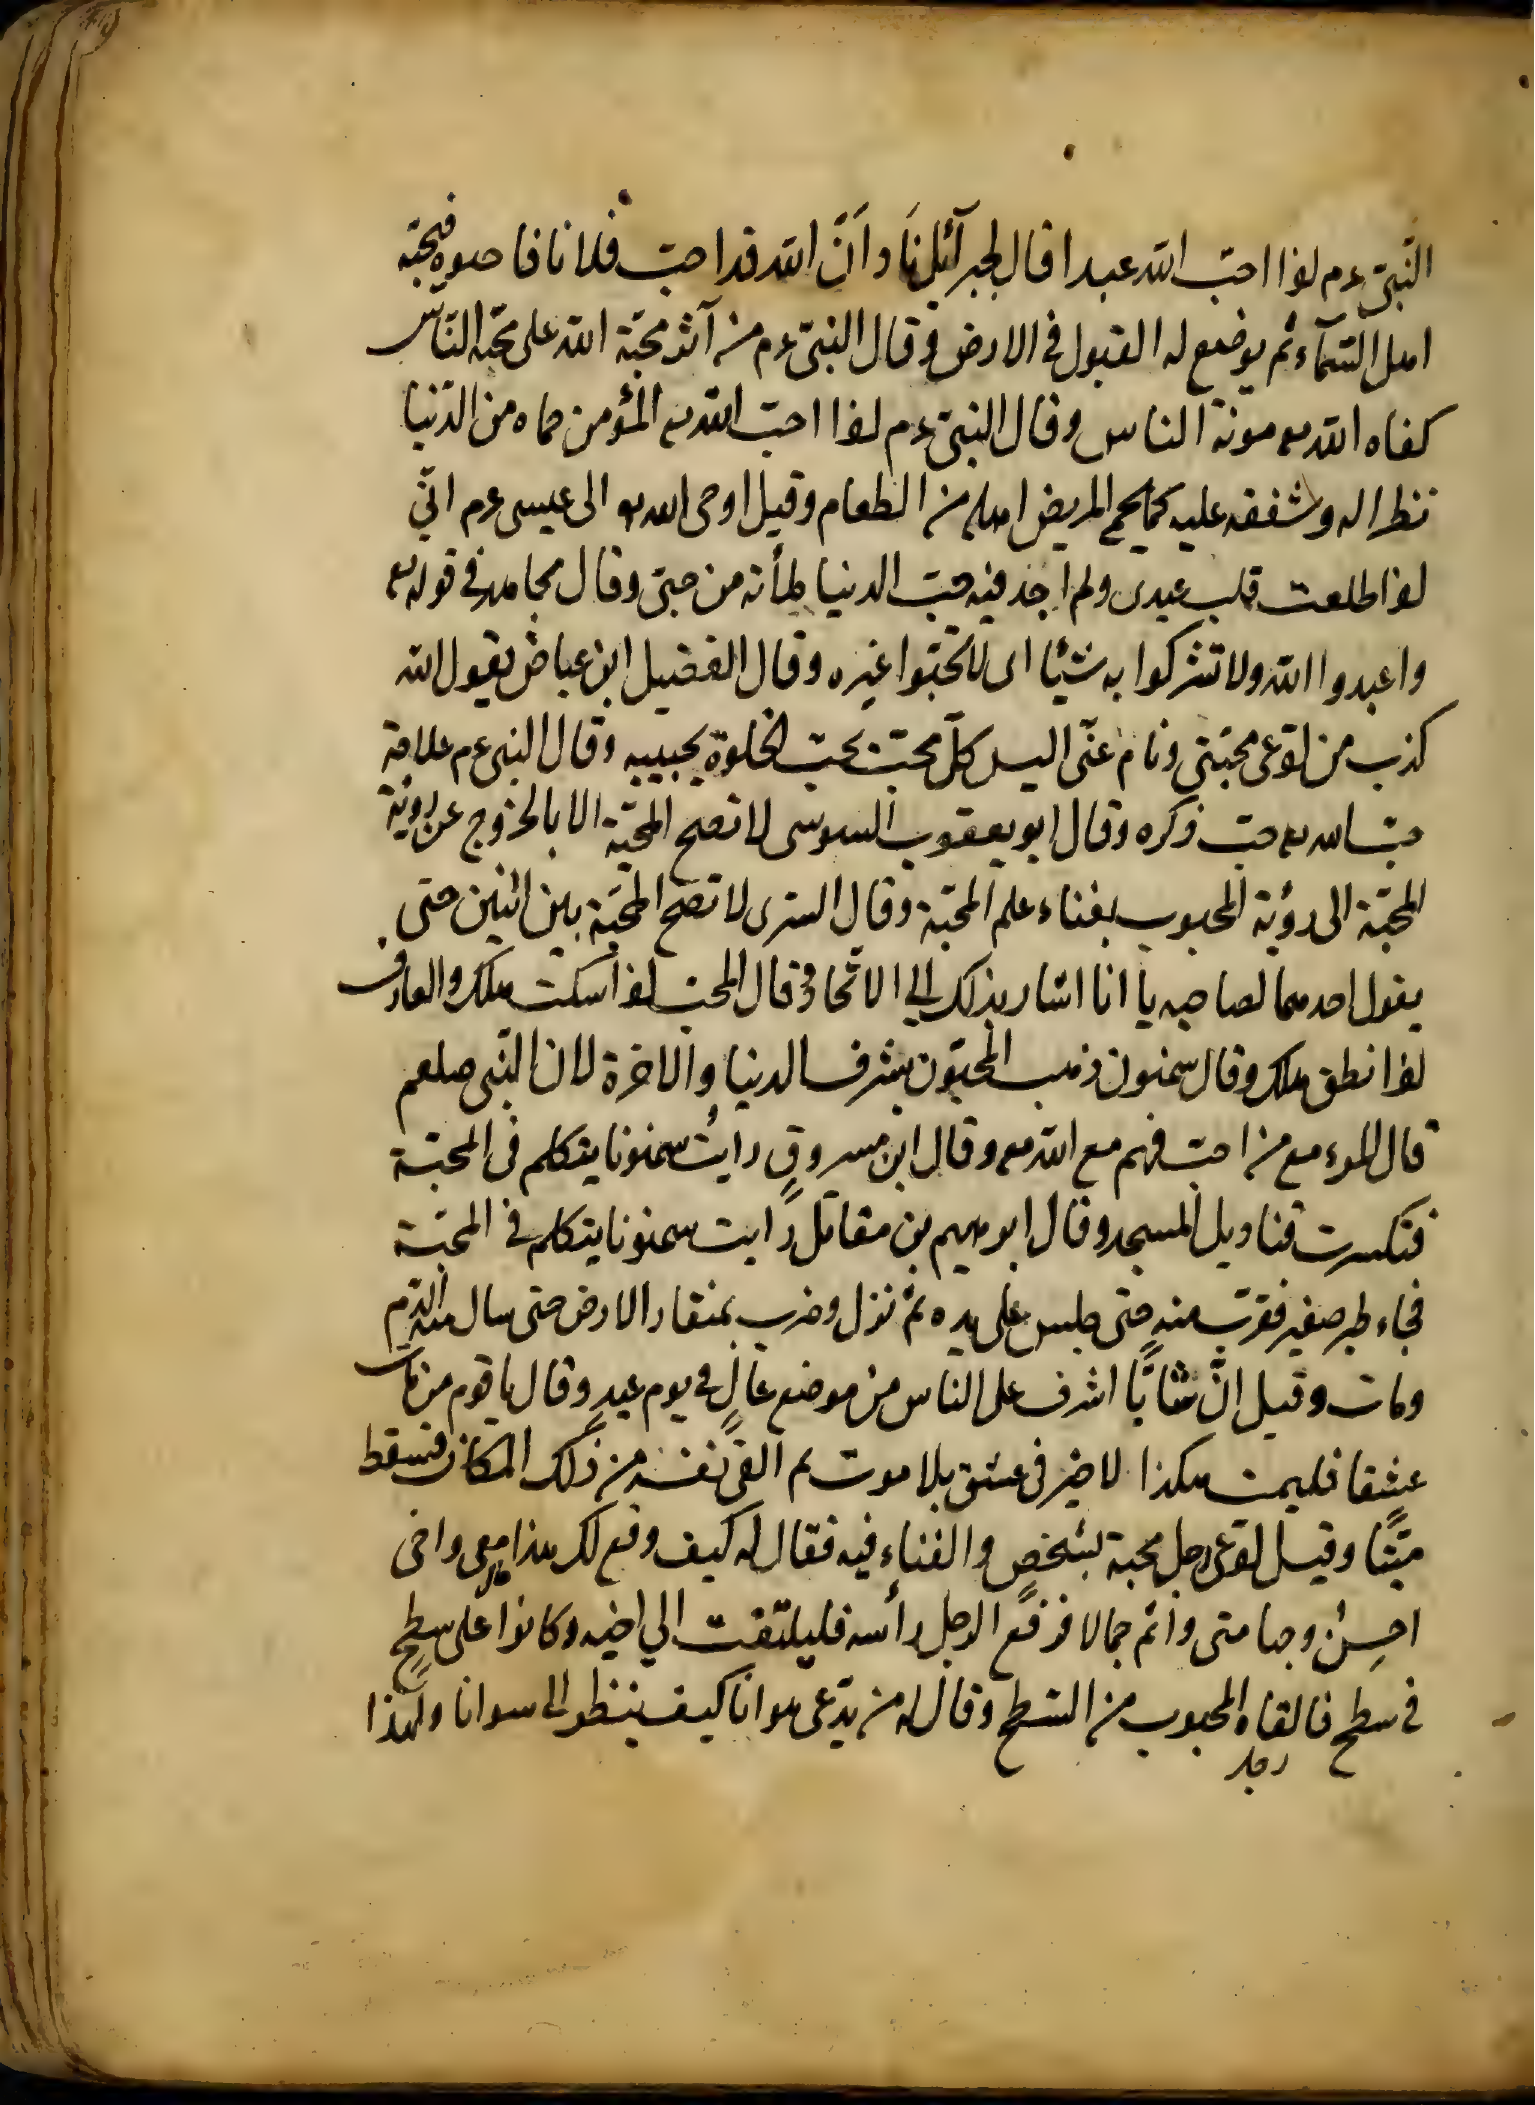 النبى عم اذا احب الله عبدا قال لجبرآئيل ناد انّ الله قد احب فلانا فاحبوه فيحبّه
اهل السّمآء ثم يوضع له القبول فى الارض وقال النبىّ عم من آثر محبّة الله على محبّة النّاس
كفاه الله تع مونة الناس وقال النبىّ عم اذا احبّ الله تع المؤمن حماه من الدّنيا
نظرا له وشفقة عليه كما يحمى المريض اهله من الطعام وقيل اوحى الله تع الى عيسى عم انّى
اذا اطلعت قلب عبدى ولم اجد فيه حبّ الدنيا ملأته من حبّى وقال مجاهد فى قوله تع
واعبدوا الله ولا تشركوا به شيئا اى لا تحبّوا غيره وقال الفضيل ابن عياض يقول الله
كذب من ادّعى محبّتى ونام عنّى اليس كلّ محبّ يحبّ الخلوة بحبيبه وقال النبى عم علامة
حبّ الله تع حبّ ذكره وقال ابو يعقوب السوسى لا تصح المحبّة الا بالخروج عن رؤية
المحبّة الى رؤية المحبوب بفناء علم المحبّة وقال السرى لا تصح المحبّة بين اثنين حتى
يقول احدهما لصاحبه يا انا اشار بذلك الى الاتّحاد وقال المحبّ اذا سكت هلك والعارف
اذا نطق هلك وقال سمنون ذهب المحبّون بشرف الدنيا والاخرة لان النّبى صلعم
قال المرء مع من احبّ فهم مع الله تع وقال ابن مسروق رأيت سمنونا يتكلم فى المحبّة
فتكسرت قناديل المسجد وقال ابرهيم بن مقاتل رايت سمنونا يتكلم فى المحبّة
فجاء طير صغير فقرب منه حتى جلس على يده ثم نزل وضرب بمنقار الارض حتى سال منه الدّم
ومات وقيل انّ شابّا اشرف على الناس من موضع عالٍ فى يوم عيد وقال يا قوم من مات
عشقا فليمت هكذا لا خير فى عشق بلا موت ثم القى نفسه من ذلك المكان فسقط
ميّتا وقيل ادّعى رجل محبة بشخص والفناء فيه فقال له كيف وقع لك هذا معى واخى
احسن وجها منى واتم جمالا فرفع الرجل رأسه فليلتفت الى اخيه وكانوا على سطح
فى سطح فالقاه المحبوب من السّطح وقال له من يدّعى هوانا كيف ينظر الى سوانا ولهذا
رجلا